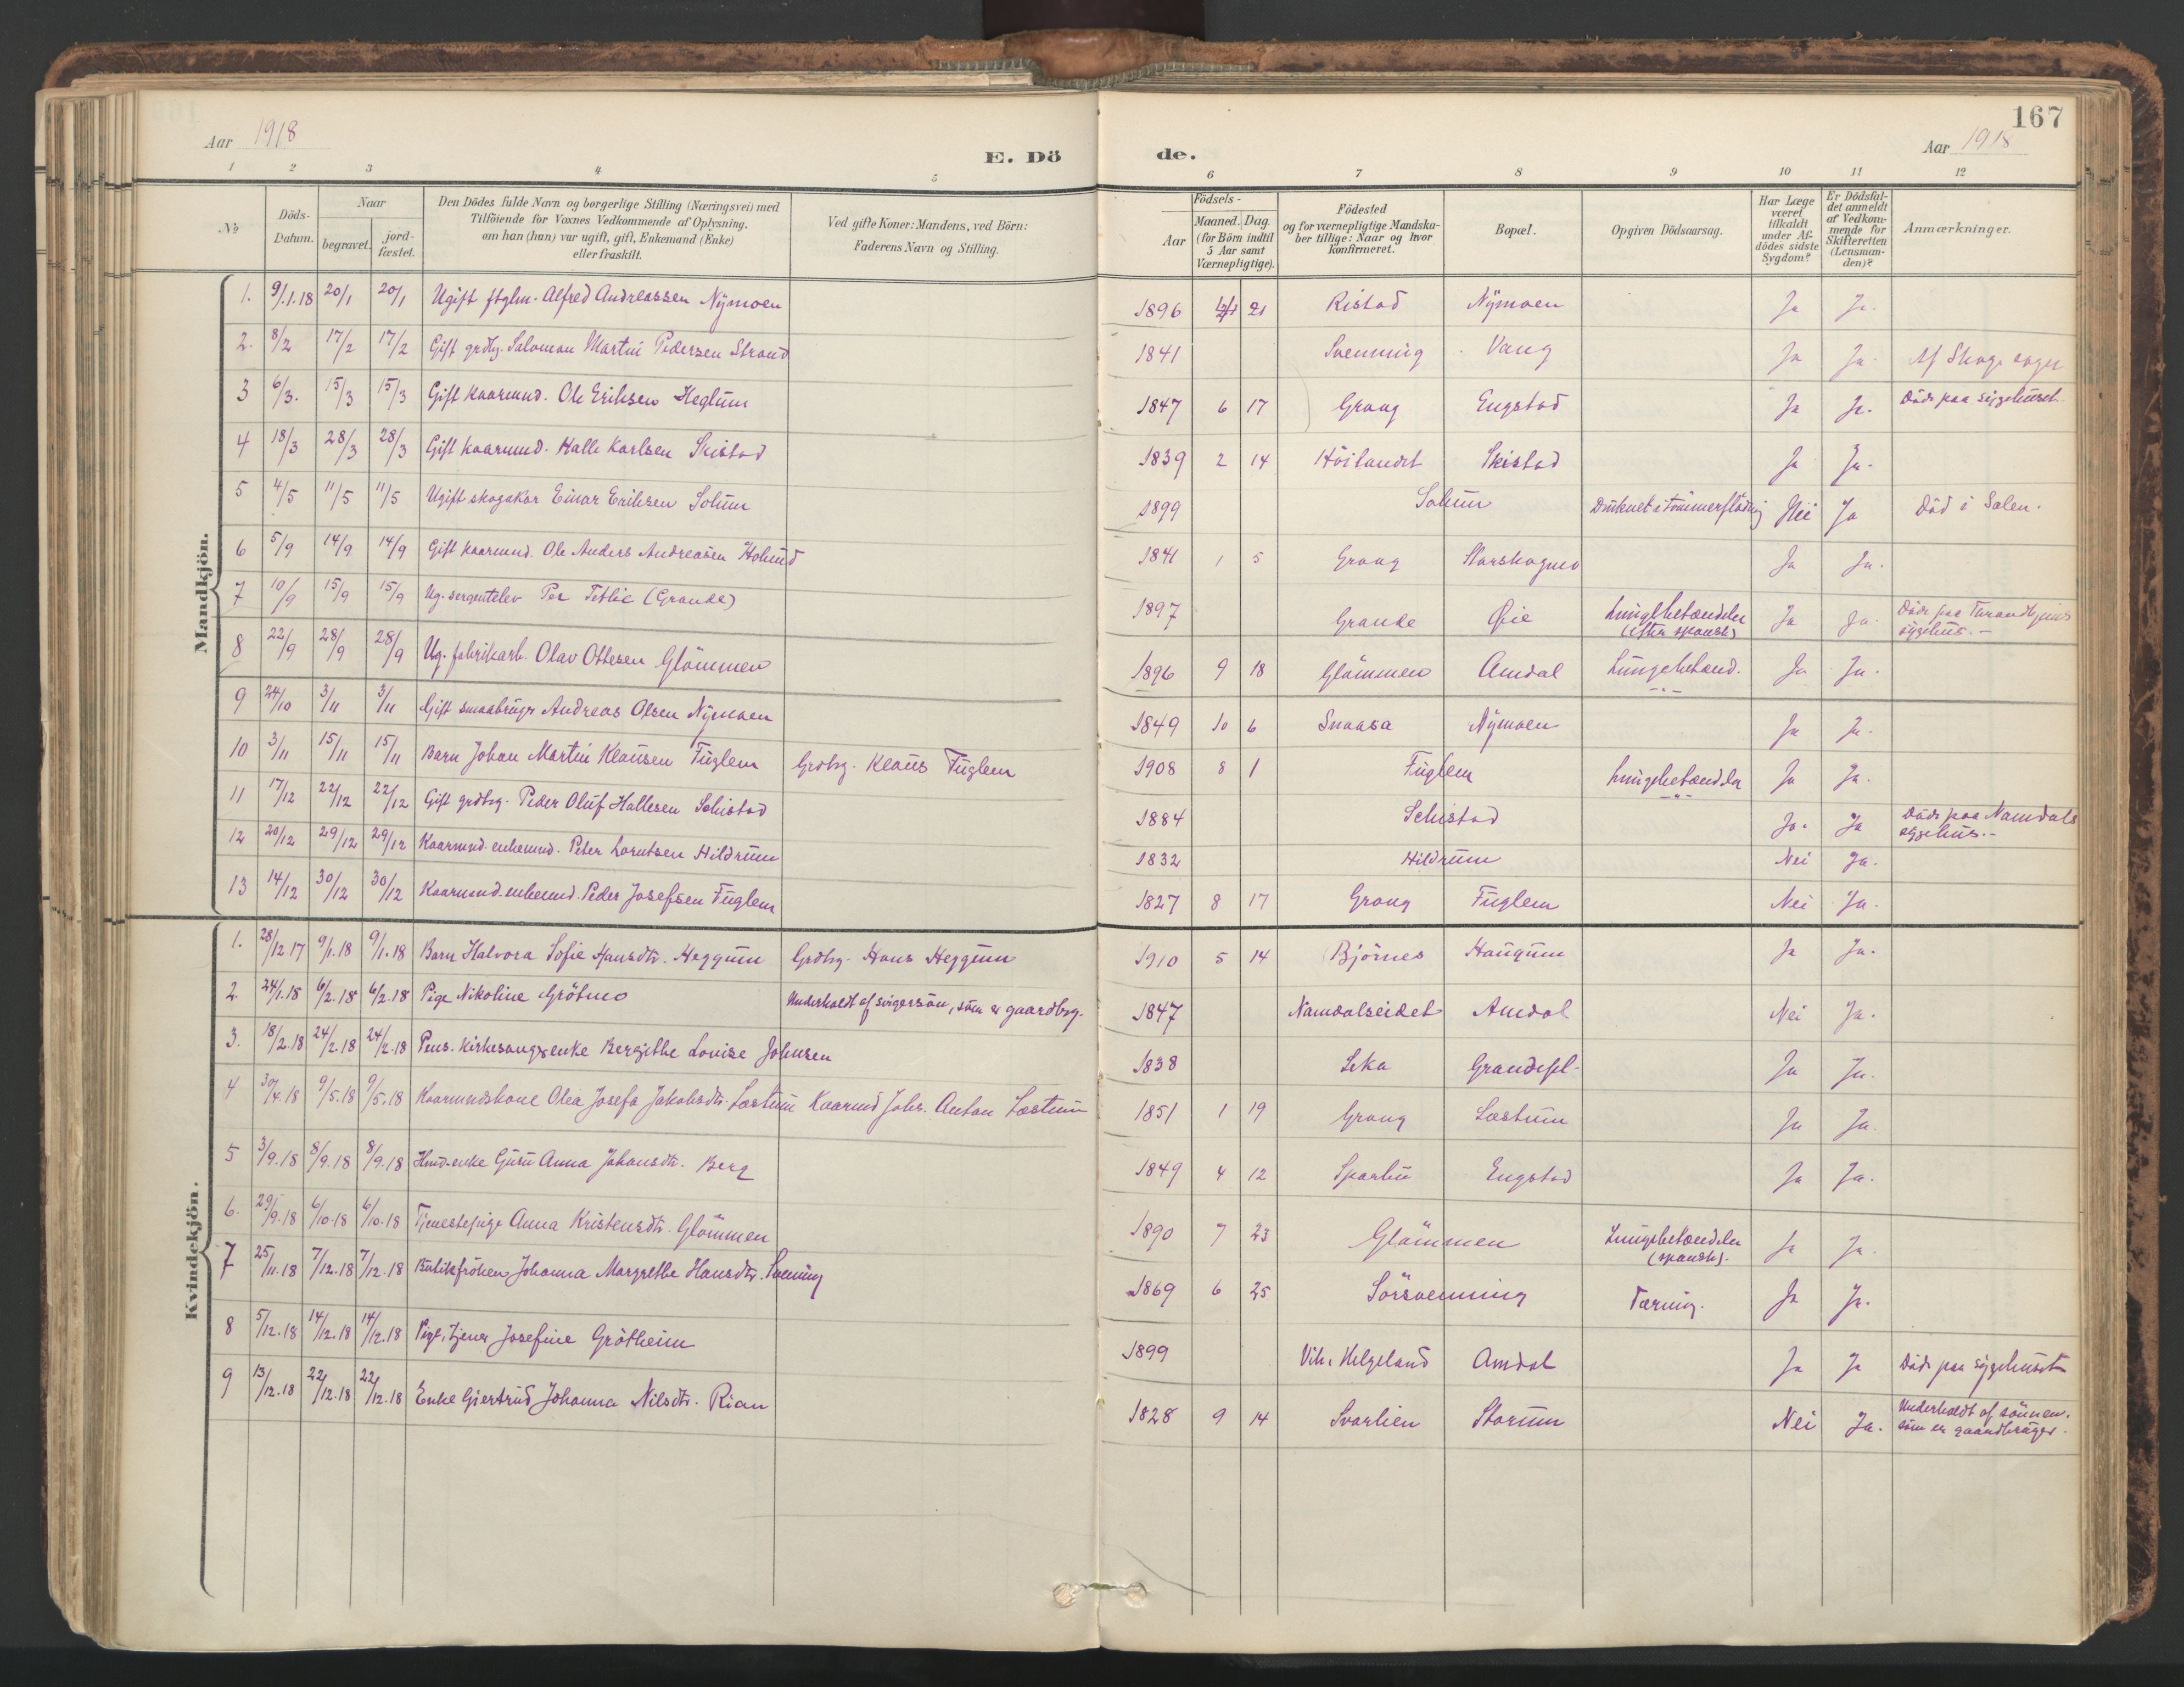 167
Aar 1918
E. Dö
de.
Aar 1918
1 2 3 4 5 6 7 8 9 10 11 12
No
Döds-Datum.
Naar
begravet.
jord-fæstet.
Den Dödes fulde Navn og borgerlige Stilling (Næringsvei) med
Tilföiende for Voxnes Vedkommende af Oplysning,
om han (hun) var ugift, gift, Enkemand (Enke)
eller fraskilt.
Ved gifte Koner: Mandens, ved Börn:
Faderens Navn og Stilling.
Födsels-
Aar
Maaned. Dag.
(for Börn indtil
5 Aar samt
Værnepligtige).
Födested
og for værnepligtige Mandska-
ber tillige: Naar og hvor
Konfirmeret.
Bopæl.
Opgiven Dödsaarsag.
Har Læge
været
tilkaldt
under Af-
dödes sidste
Sygdom?
Er Dödsfal-
det anmeldt
af Vedkom-
mende for
Skifteretten
(Lensman-
den)?
Anmærkninger.
Mandkjön.
1. 9/1.18 20/1 20/1 Ugift Alfred Andreassen Nymoen 1896 21 Ristad Nymoen Ja Ja.
2. 8/2 17/2 17/2 Gift grdbg. Salomon Martin Pedersen Strand 1841 Svenning Vang Ja Ja. Af Skage sogn
3 6/3. 15/3 15/3 Gift kaarmnd. Ole Eriksen Heglum 1847 6 17 Grong Engstad Ja Ja. Död paa sygehuset.
4 18/3 28/3 28/3 Gift kaarmnd. Halle Karlsen Skistad 1839 2 14 Höilandet Skistad Ja Ja.
5 4/5 11/5 11/5 Ugift skogskar Einar Eriksen Solum 1899 Solum Druknet i tömmerflödnig Nei Ja Död i Salen.
6 5/9 14/9 14/9 Gift kaarmnd. Ole Anders Andreasen Holmd 1841 1 5 Grong Ja Ja.
7 10/9 15/9 15/9 Ug. sergentelev Per Tetlie (Grande) 1897 Grande Øie Lungebetændelse (efter spansk) Ja Ja. Död paa Throndhjems sygehus.-
8 22/9 28/9 28/9 Ug. fabrikarb. Olav Ottesen Glömmen 1896 9 18 Glömmen Amdal Lungebetænd. -"- Ja Ja.
9 24/10 3/11 3/11 Gift smaabruger Andreas Olsen Nymoen 1849 10 6 Snaasa Nymoen Ja Ja.
10 3/11 15/11 15/11 Barn Johan Martin Klausen Fuglem Grdbrg. Klaus Fuglem 1908 8 1 Fuglem Lungebetændelse -"- Ja Ja.
11 17/12 22/12 22/12 Gift grdbrg. Peder Oluf Hallesen Schistad 1884 Schistad Ja. Ja Död paa Namdals sygehus.-
12 20/12 29/12 29/12 Kaarmnd. enkemnd. Peter Lorntsen Hildrum 1832 Hildrum Nei Ja.
13 14/12 30/12 30/12 Kaarmnd. enkemnd. Peder Josefsen Fuglem 1827 8 17 Grong Fuglem Nei Ja.
Kvindekjön.
1. 28/12 17 9/1.18 9/1.18 Barn Halvora Sofie Hansdtr. Heggum Grdbrg. Hans Heggum 1910 5 14 Björnes Haugum Ja Ja.
2. 24/1.18 6/2.18 6/2.18 Pige Nikoline Grötmo Underholdt af svigersön, som er gaardbrg. 1847 Namdalseidet Amdal Nei Ja.
3. 18/2.18 24/2.18 24/2.18 Pens. kirkesangerenke Bergitte Lovise Johnsen 1838 Leka Grandepl. Ja Ja.
4 30/4.18 9/5.18 9/5.18 Kaarmandskone Olea Josefa Jakobsdtr. Læstum Kaarmd Johs. Anton Læstum 1851 1 19 Grong Læstum Ja Ja.
5 3/9.18 8/9.18 8/9.18 Hmd. enke Guru Anna Johansdtr. Berg 1849 4 12 Sparbu Engstad Ja Ja.
6. 29/9.18 6/10.18 6/10.18 Tjenestepige Anna Kristensdtr. Glömmen 1890 7 23 Glömmen Lungebetændelse (spansk). Ja Ja.
7 25/11.18 7/12.18 7/12.18 Butikfröken Johanna Margrethe Hansdtr. Svening 1869 6 25 Sörsvenning Tæring. Ja Ja.
8 5/12.18 14/12.18 14/12.18 Pige, tjener Josefine Grötheim 1899 Vik, Helgeland Amdal Ja Ja Död paa sygehuset
9 13/12.18 22/12.18 22/12.18 Enke Gjertrud Johanna Nilsdtr. Rian 1828 9 14 Svarlien Storum Nei Ja. Underholdt af sönnen, som er gaardbruger.